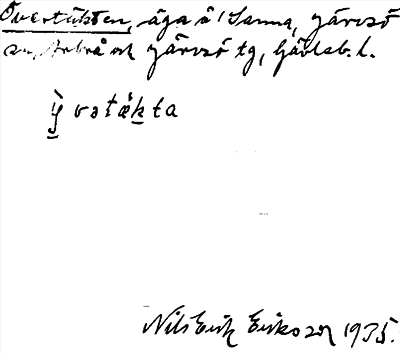 Övertäkten, äga å Sanna, Järvsö
sn, Arbrå och Järvsö tg, Gävleb. l.
ÿ̀ vətäkta
Nils Erik Eriksson 1935.